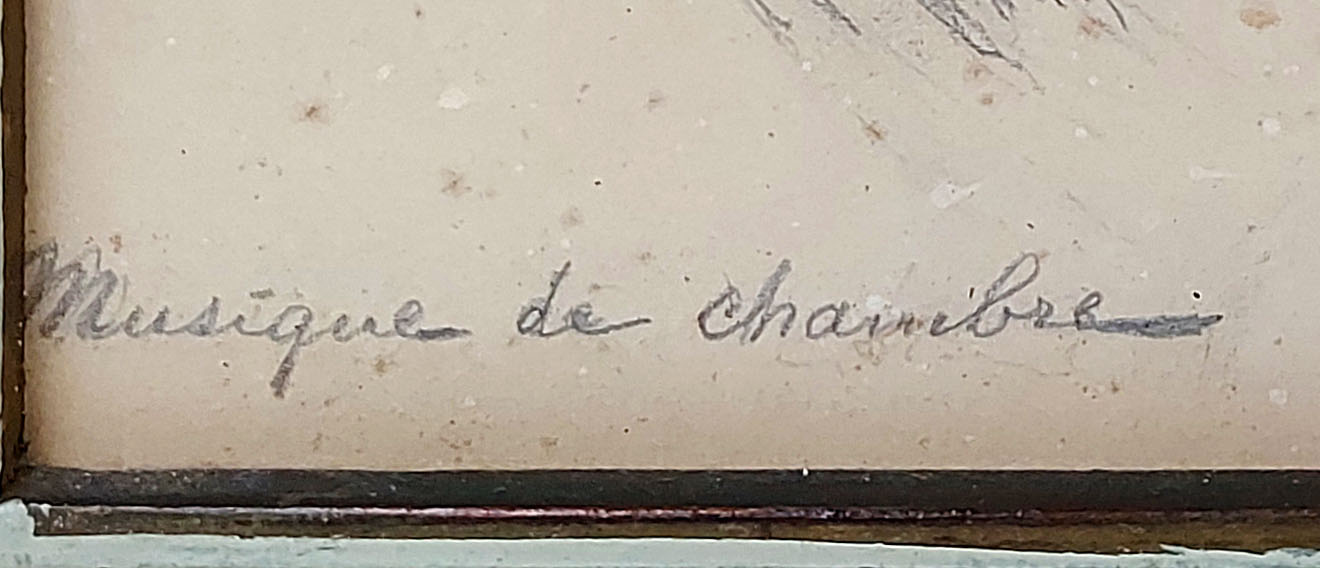 Musique de chambre